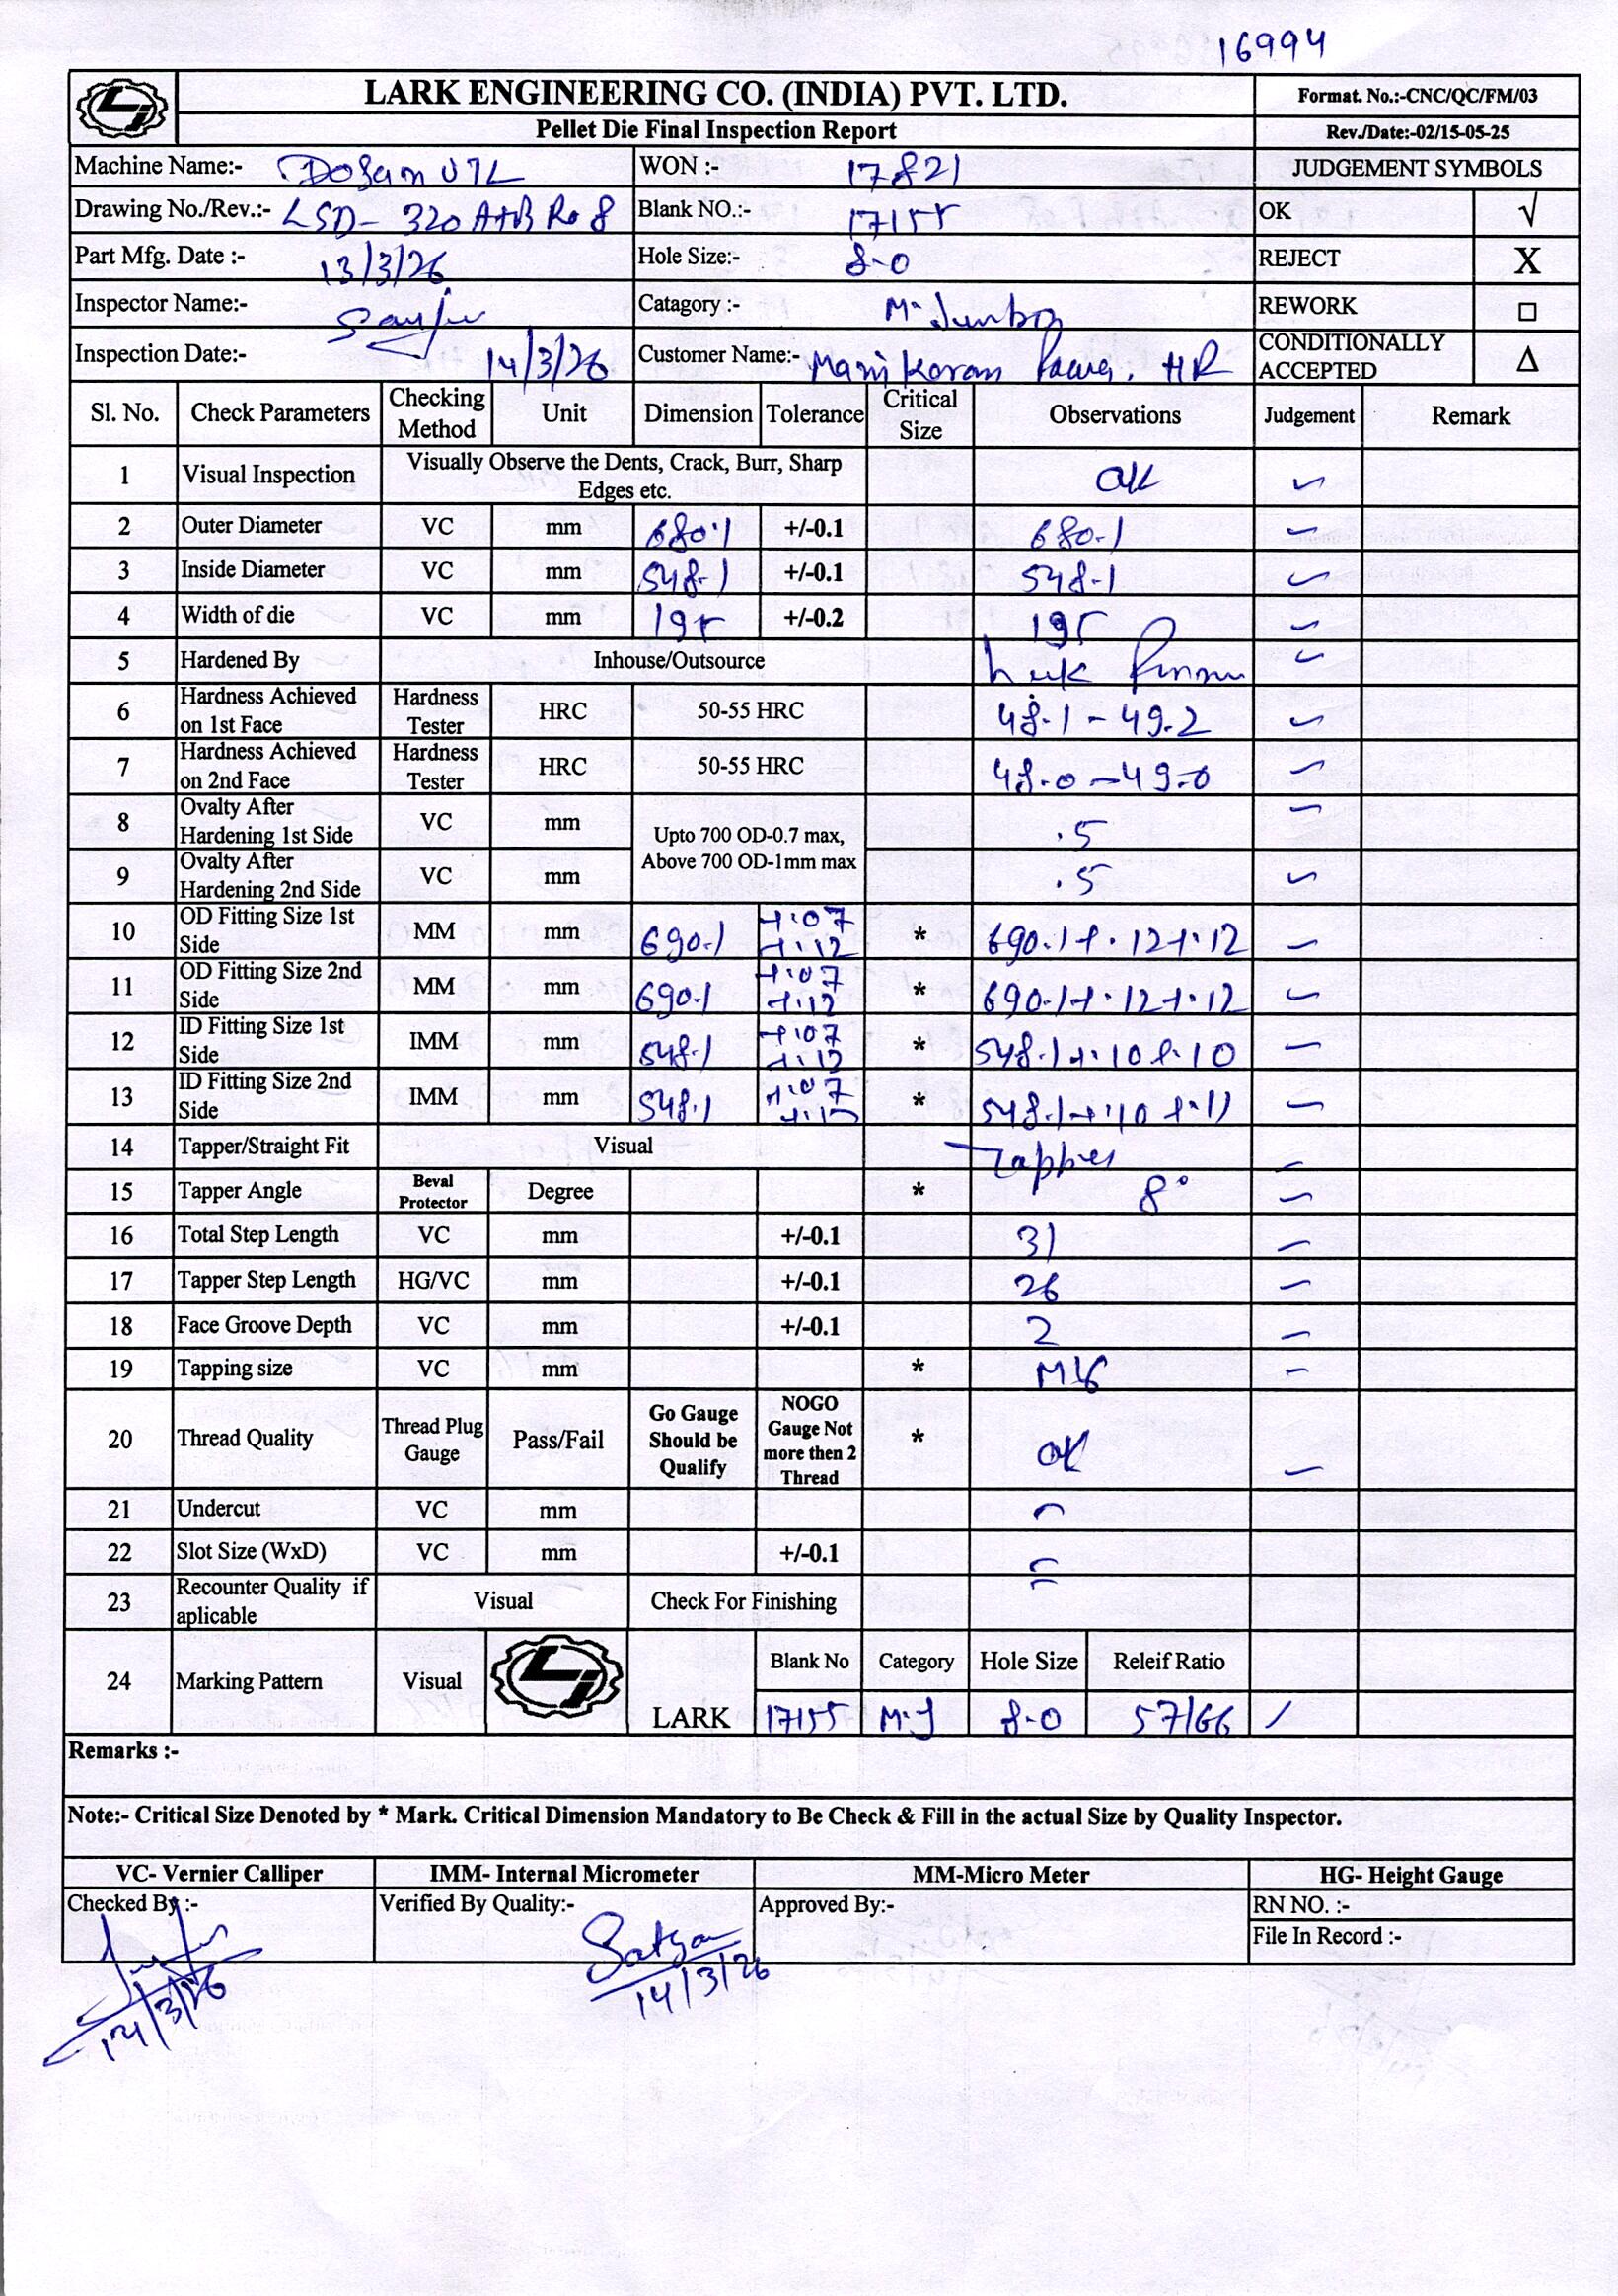 16994
LARK ENGINEERING CO. (INDIA) PVT. LTD.
Format. No.:-CNC/QC/FM/03
Pellet Die Final Inspection Report
Rev./Date:-02/15-05-25
Machine Name:- WON :- 17821 JUDGEMENT SYMBOLS
Drawing No./Rev.:- LSD- 320 A+B Ro 8 Blank NO.:- 17155 OK √
Part Mfg. Date :- 13/3/26 Hole Size:- 8-0 REJECT X
Inspector Name:- Sanju Catagory :- M- Jumbo REWORK □
Inspection Date:- 14/3/26 Customer Name:- Mani Karan HR CONDITIONALLY ACCEPTED Δ
Sl. No. Check Parameters Checking Method Unit Dimension Tolerance Critical Size Observations Judgement Remark
1 Visual Inspection Visually Observe the Dents, Crack, Burr, Sharp Edges etc. OK ✓
2 Outer Diameter VC mm 680.1 +/-0.1 680-1 ✓
3 Inside Diameter VC mm 548-1 +/-0.1 548-1 ✓
4 Width of die VC mm 195 +/-0.2 195 ✓
5 Hardened By Inhouse/Outsource ✓
6 Hardness Achieved on 1st Face Hardness Tester HRC 50-55 HRC 48.1 - 49.2 ✓
7 Hardness Achieved on 2nd Face Hardness Tester HRC 50-55 HRC 48.0 - 49.0 ✓
8 Ovalty After Hardening 1st Side VC mm Upto 700 OD-0.7 max, Above 700 OD-1mm max .5 ✓
9 Ovalty After Hardening 2nd Side VC mm .5 ✓
10 OD Fitting Size 1st Side MM mm 690.1 +.07 +.12 * 690.1+.12+.12 ✓
11 OD Fitting Size 2nd Side MM mm 690.1 +.07 +.12 * 690.1+.12+.12 ✓
12 ID Fitting Size 1st Side IMM mm 548.1 +.07 +.12 * 548.1+.10+.10 ✓
13 ID Fitting Size 2nd Side IMM mm 548.1 +.07 +.12 * 548.1+.10+.11 ✓
14 Tapper/Straight Fit Visual Tapper ✓
15 Tapper Angle Beval Protector Degree * 8° ✓
16 Total Step Length VC mm +/-0.1 31 ✓
17 Tapper Step Length HG/VC mm +/-0.1 26 ✓
18 Face Groove Depth VC mm +/-0.1 2 ✓
19 Tapping size VC mm * M16 ✓
20 Thread Quality Thread Plug Gauge Pass/Fail Go Gauge Should be Qualify NOGO Gauge Not more then 2 Thread * OK ✓
21 Undercut VC mm -
22 Slot Size (WxD) VC mm +/-0.1 -
23 Recounter Quality if aplicable Visual Check For Finishing -
24 Marking Pattern Visual LARK Blank No Category Hole Size Releif Ratio
17155 M.J 8-0 57/66 ✓
Remarks :-
Note:- Critical Size Denoted by * Mark. Critical Dimension Mandatory to Be Check & Fill in the actual Size by Quality Inspector.
VC- Vernier Calliper IMM- Internal Micrometer MM-Micro Meter HG- Height Gauge
Checked By :- Verified By Quality:- Satyam Approved By:- RN NO. :-
File In Record :-
14/3/26 14/3/26